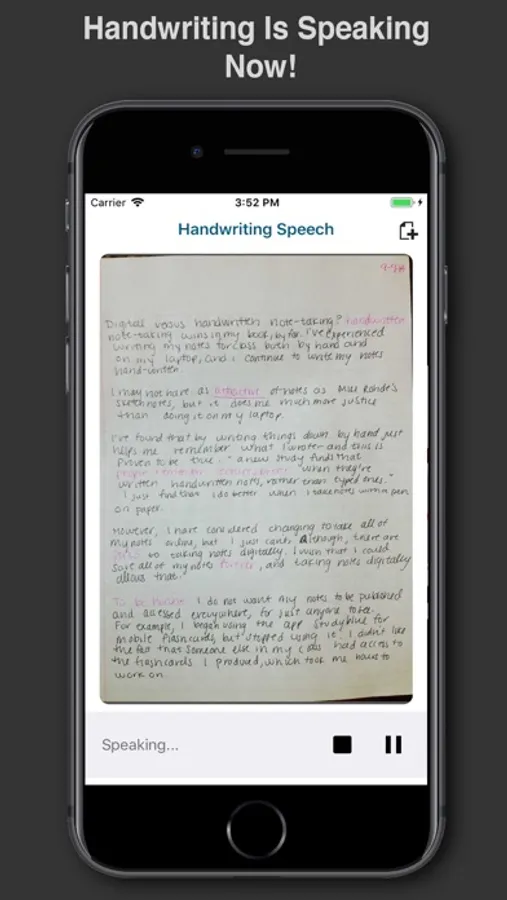 Handwriting Is Speaking
Now!
Carrier
3:52 PM
Handwriting Speech
9-98
Digital versus handwritten note-taking? handwritten
note-taking wins in my book, by far. I've experienced
writing my notes for class both by hand and
on my laptop, and i continue to write my notes
hand-written.
I may not have as attractive of notes as Mike Rohde's
sketchnotes, but it does me much more justice
than doing it on my laptop.
I've found that by writing things down by hand just
helps me remember what I wrote- and this is
proven to be true. "a new study finds that
people remember "when they're
written handwritten notes, rather than typed ones."
I just find that I do better when I take notes with a pen
on paper.
However, I have considered changing to take all of
my notes online, but I just can't. Although, there are
to taking notes digitally. I wish that I could
save all of my notes forever, and taking notes digitally
allows that.
To be honest I do not want my notes to be published
and accessed everywhere, for just anyone to see.
For example, I began using the app studyblue for
mobile flashcards, but stopped using it. I didn't like
the fact that someone else in my class had access to
the flashcards I produced, which took me hours to
work on.
Speaking...